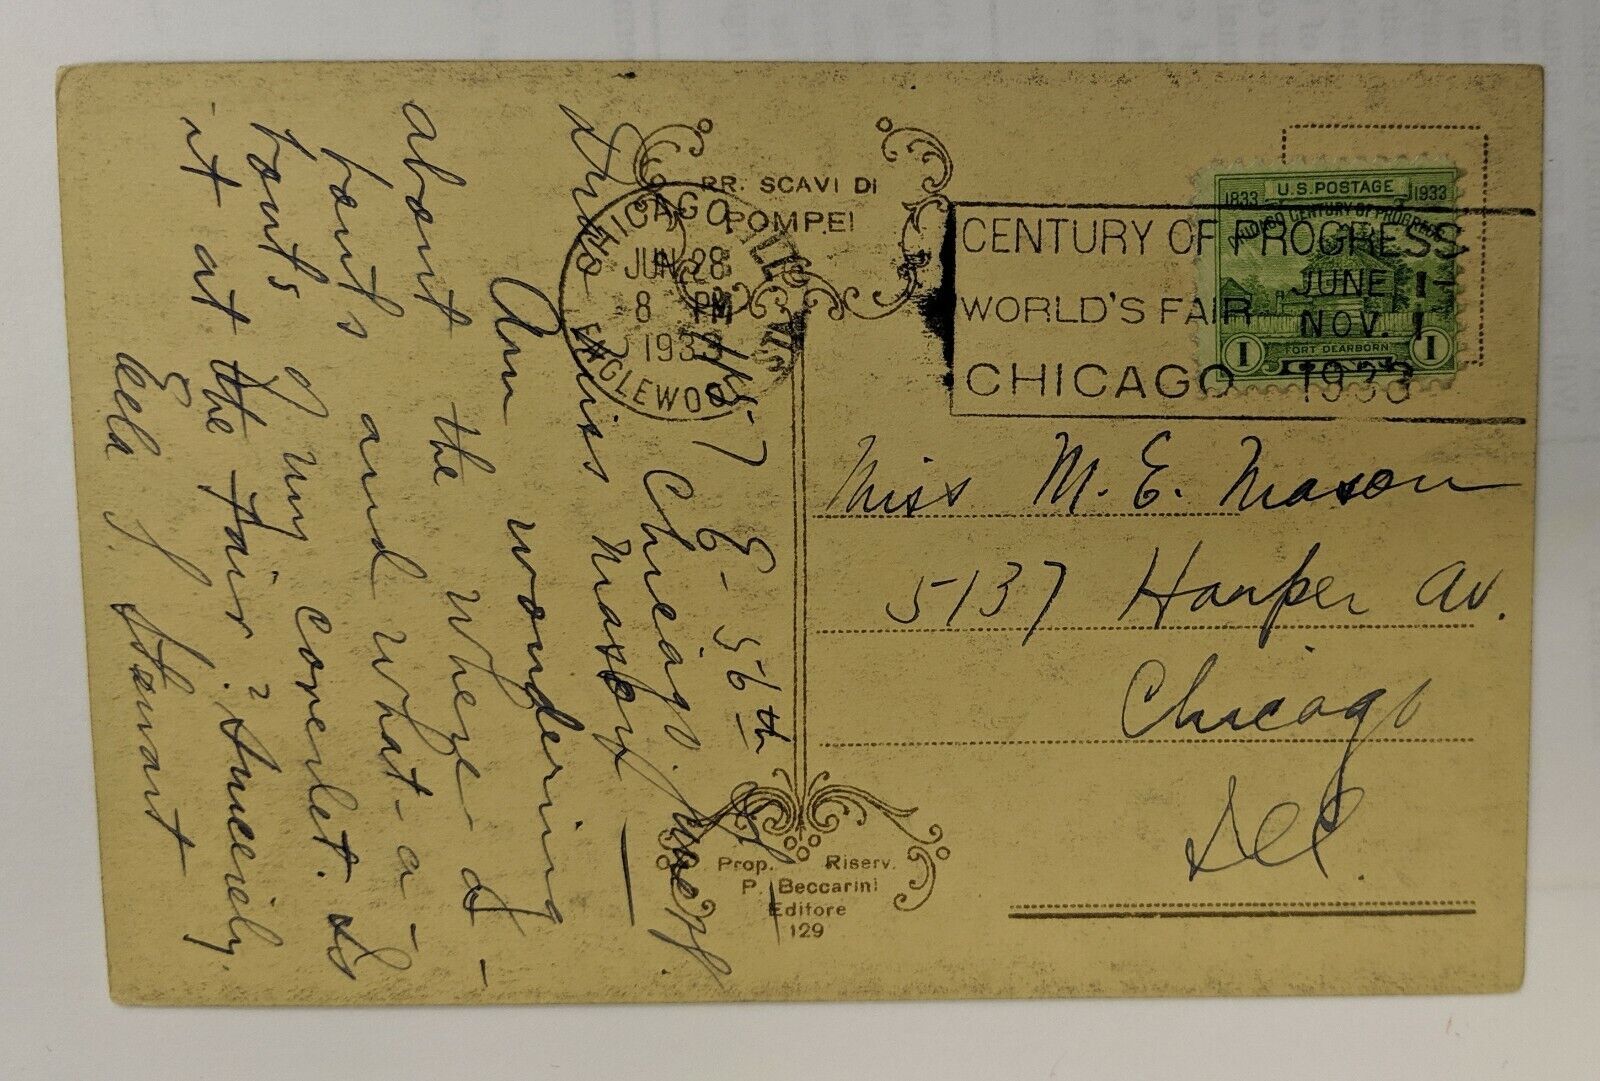 RR. SCAVI DI
POMPEI
CHICAGO, ILL.
JUN 28
8 PM
1933
ENGLEWOOD
CENTURY OF PROGRESS
WORLD'S FAIR
CHICAGO
JUNE 1
NOV. 1
1933
U.S. POSTAGE
1833
1933
CHICAGO CENTURY OF PROGRESS
FORT DEARBORN
1
1
Miss M. E. Mason
5137 Harper Av.
Chicago
Ill.
E - 56th St
Chicago.
Dear Miss Mason
Am wondering
about the where a-
bouts and what-a-
bouts of my coverlet. Is
it at the Fair? Sincerely.
J. Stewart
Prop. Riserv.
P. Beccarini
Editore
129